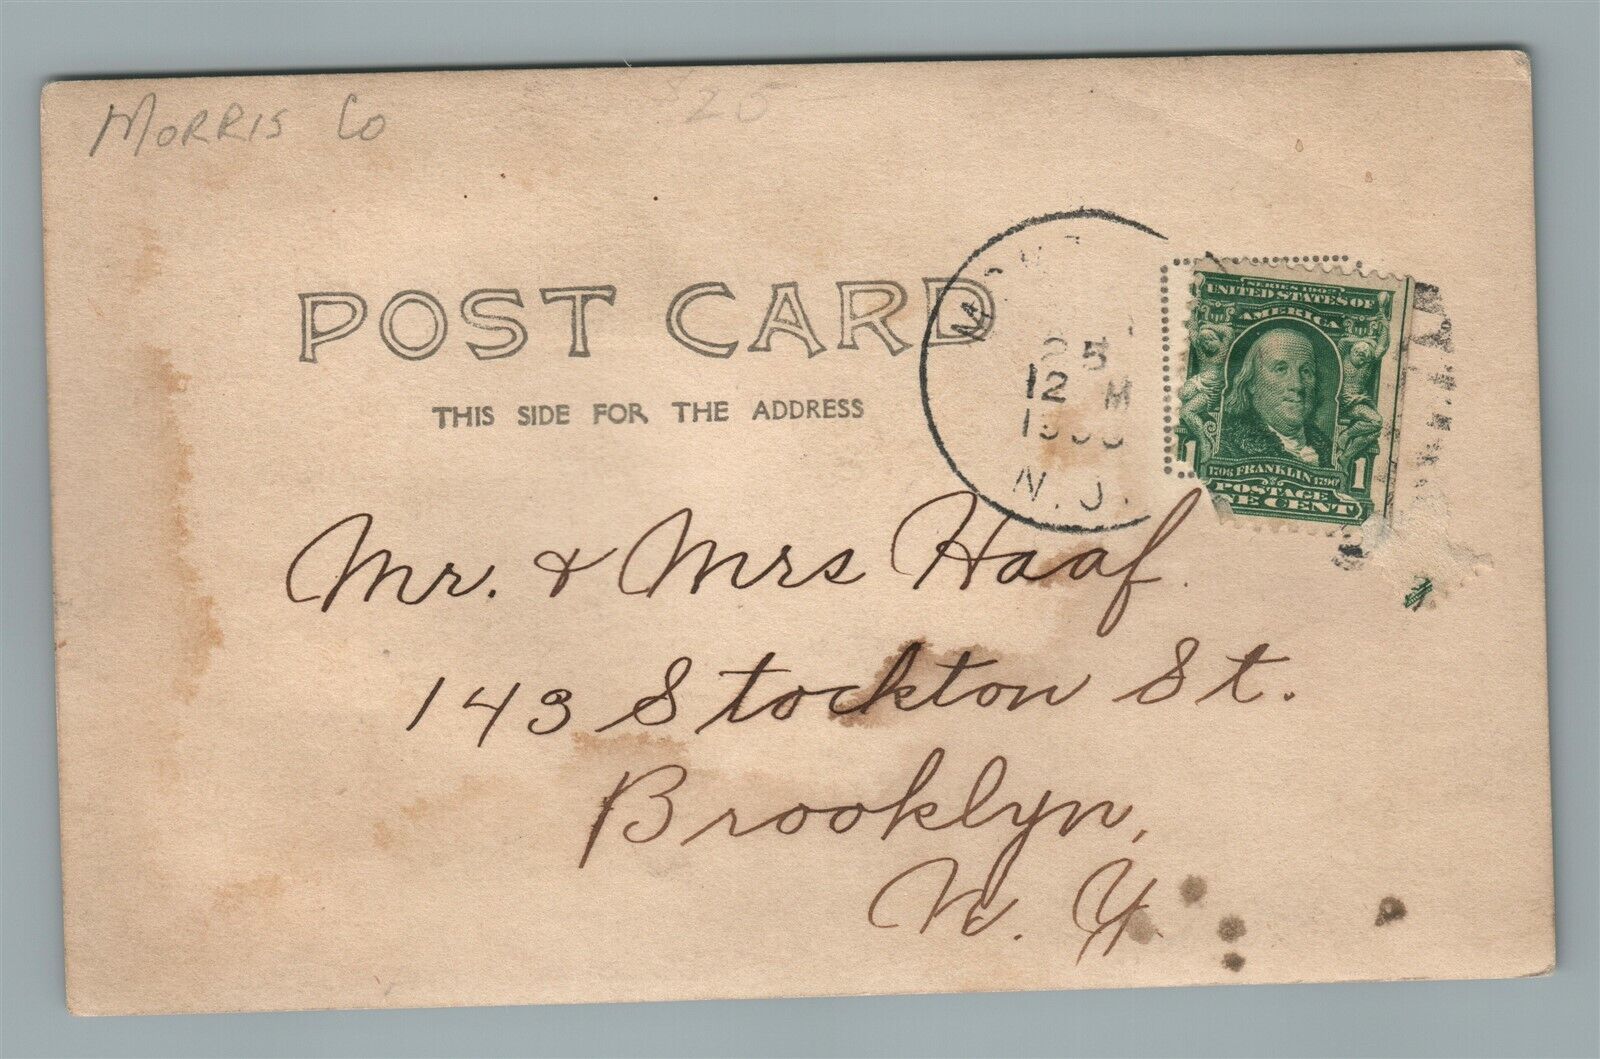 MORRIS Co
25
POST CARD
THIS SIDE FOR THE ADDRESS
12 M
N. J.
SERIES 1902
UNITED STATES OF
AMERICA
1 1
1706 FRANKLIN 1790
POSTAGE
NE CENT
Mr. & Mrs Haaf.
143 Stockton St.
Brooklyn,
N. Y.